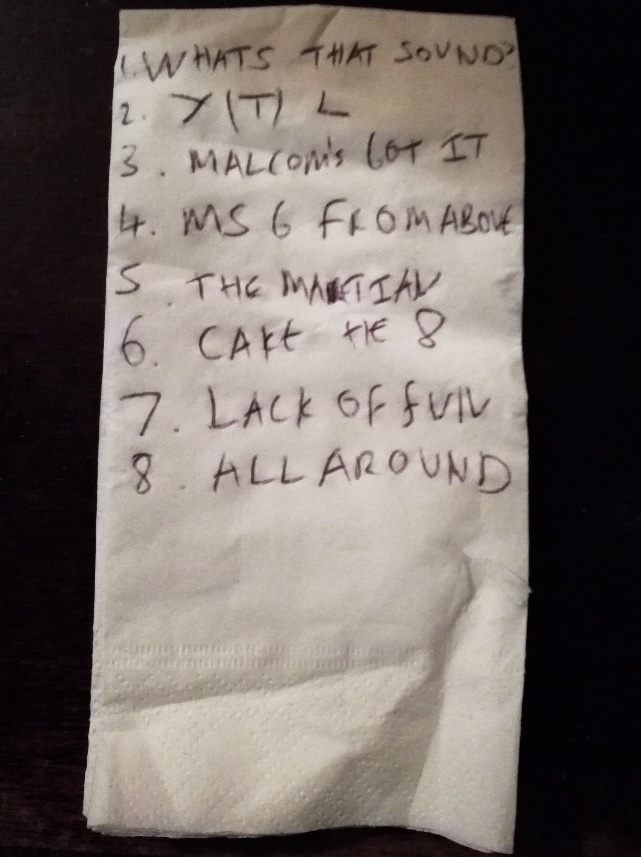 1. WHATS THAT SOUND?
2. Y(T) L
3. MALCOM'S GOT IT
4. MS 6 FROM ABOVE
5. THE MARTIAN
6. CAKE THE 8
7. LACK OF
8. ALL AROUND